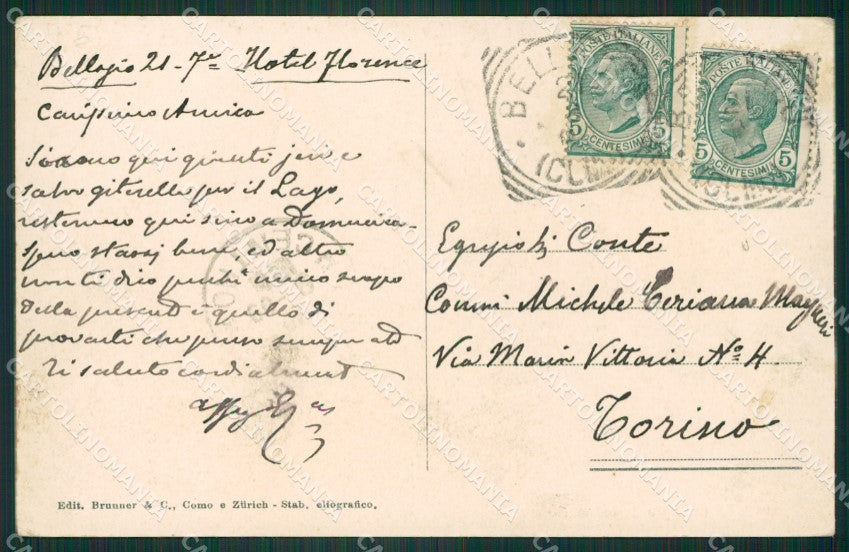 Bellagio 21-7re Hotel Florence
Carissimo Amico
Siamo qui giunti jeri e
salvo gitarella per il Lago,
resteremo qui sino a Domenica.
spero stassi bene, ed altro
non ti dico perchè unico scopo
della presente è quello di
provarti che penso sempre a te
Ti saluto cordialment
Egregio Sig Conte
Comm Michele Ceriana Mayneri
Via Maria Vittoria No 4
Torino
POSTE ITALIANE
5 CENTESIMI 5
POSTE ITALIANE
5 CENTESIMI 5
BELL
(COMO)
Edit. Brunner & C., Como e Zürich - Stab. eliografico.
CARTOLINOMANIA